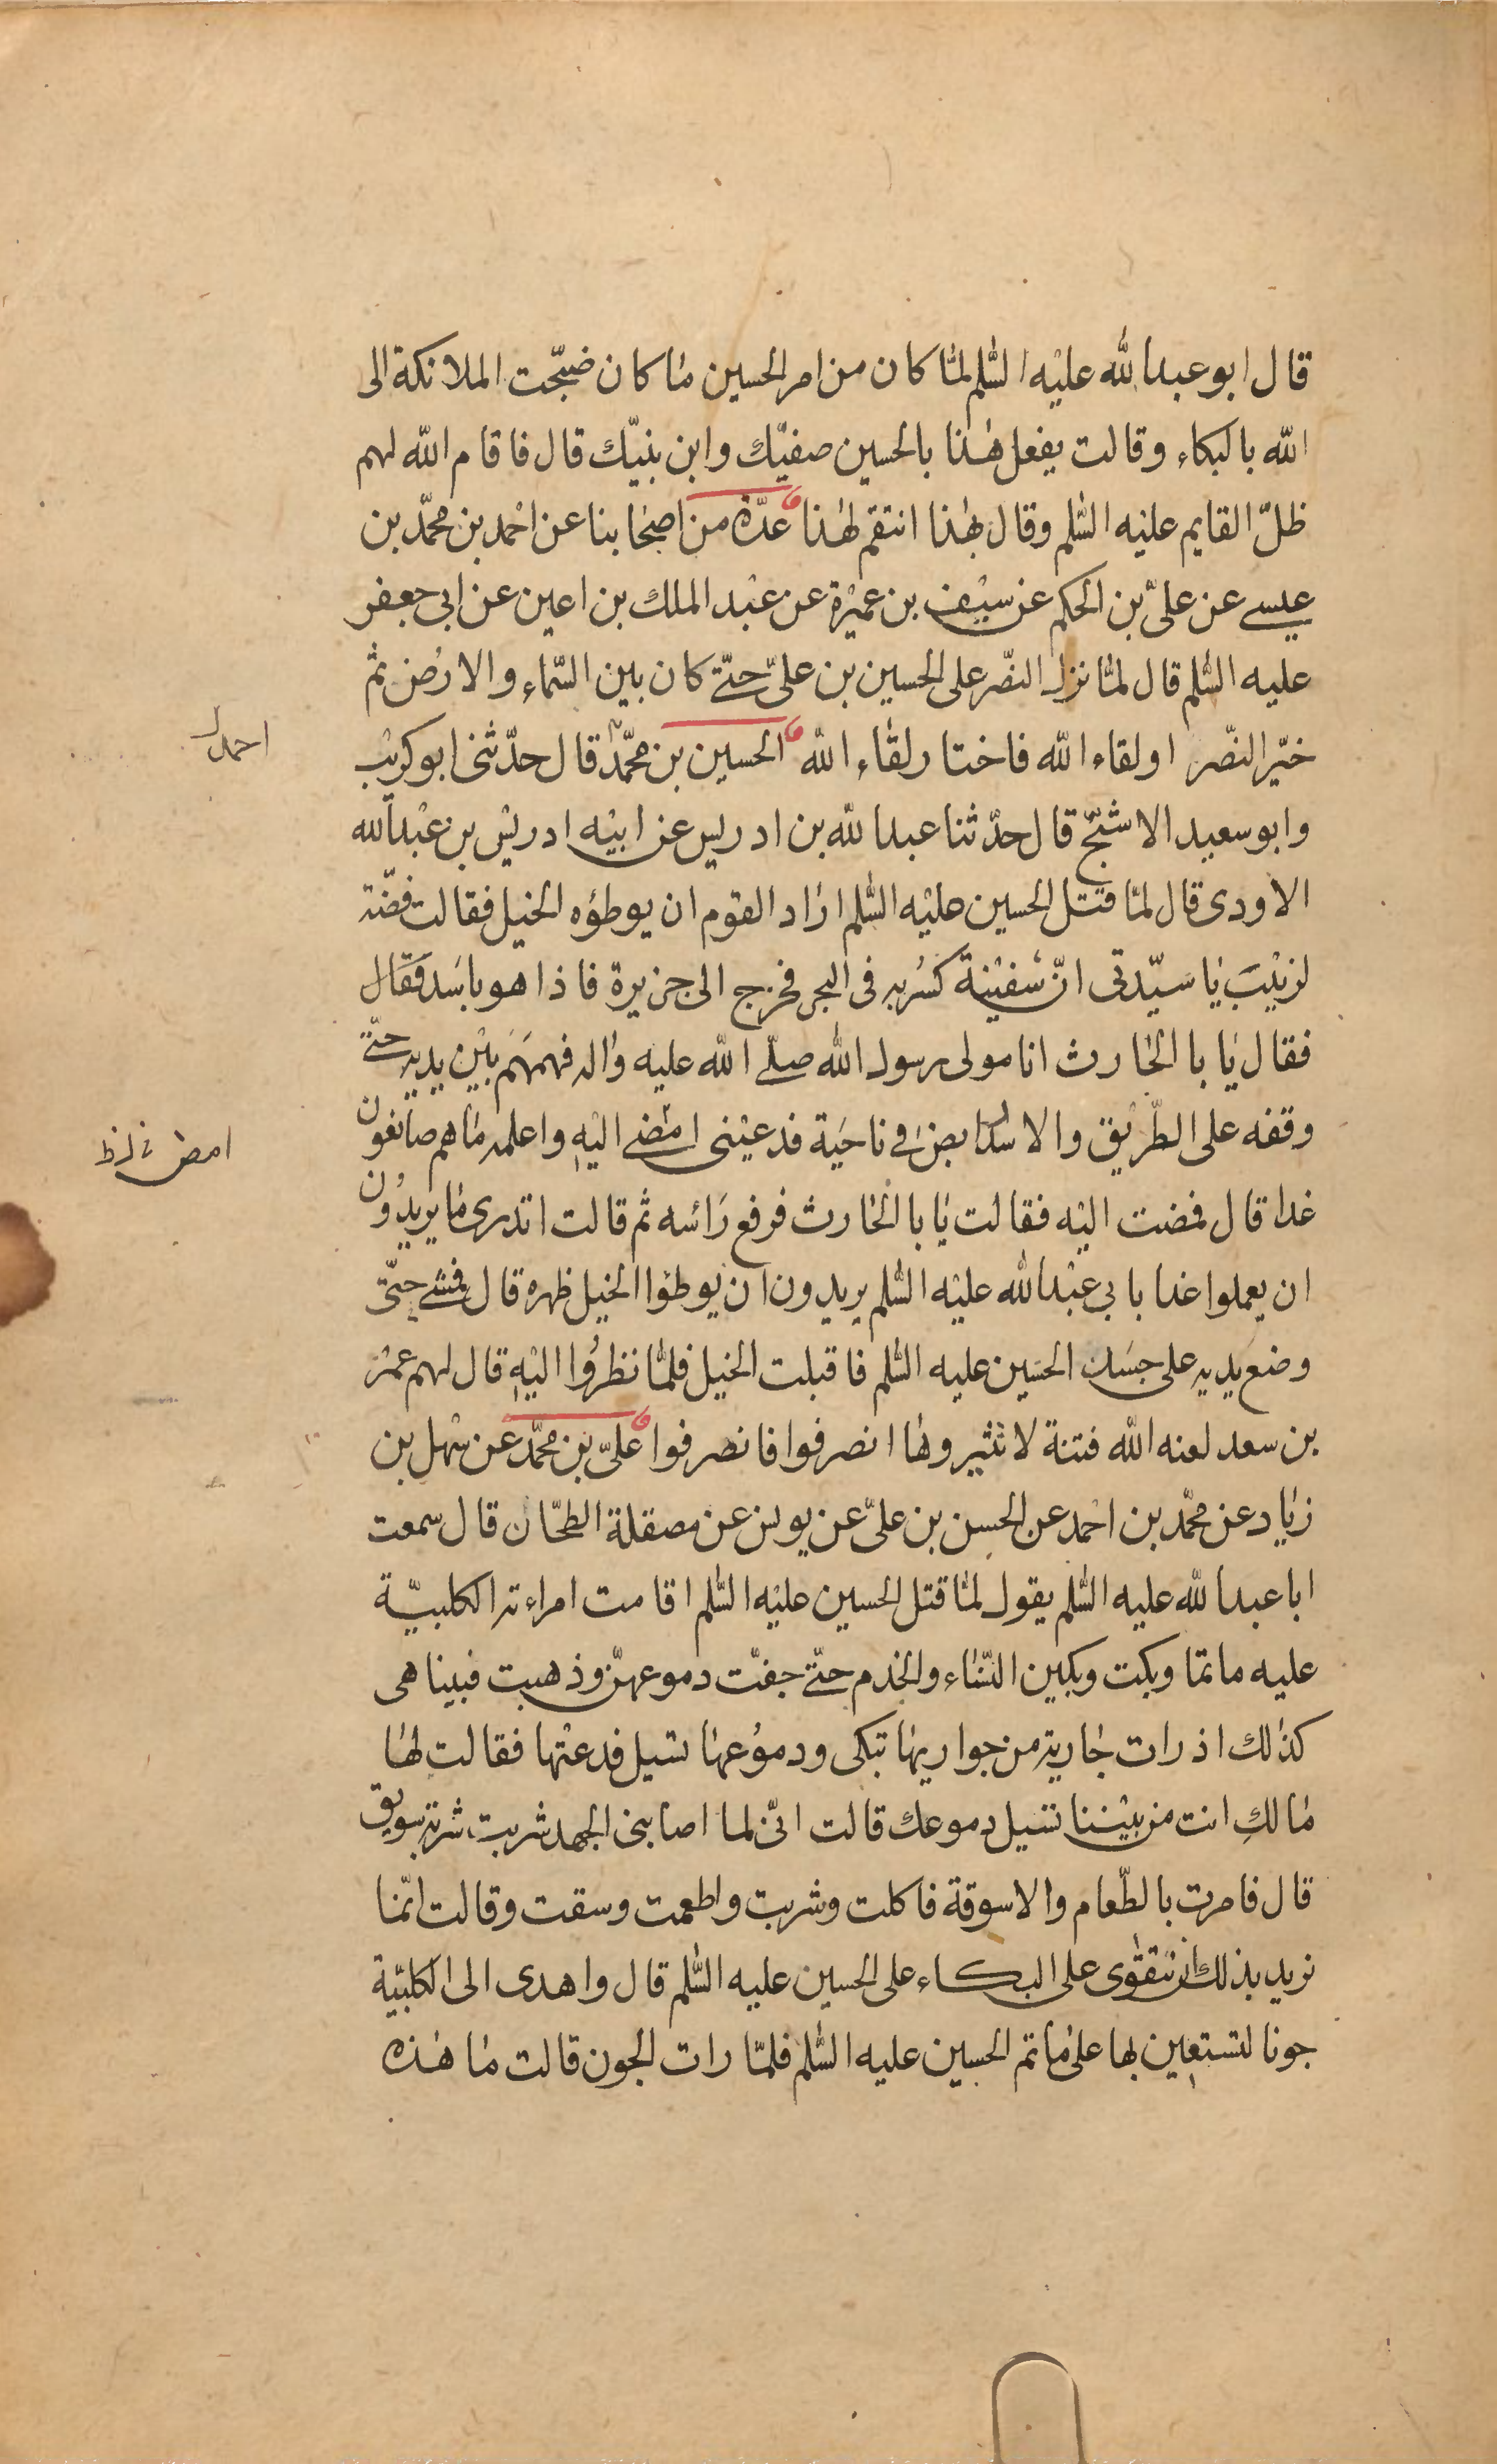 قال ابو عبد الله عليه السّلم لمّا كان من امر الحسين ما كان ضجّت الملائكة الى
الله بالبكاء وقالت يفعل هذا بالحسين صفيّك وابن نبيّك قال فاقام الله لهم
ظلّ القايم عليه السّلم وقال بهذا انتقم لهذا عدّة من اصحابنا عن احمد بن محمّد بن
عيسى عن علىّ بن الحكم عن سيف بن عميرة عن عبد الملك بن اعين عن ابى جعفر
عليه السّلم قال لمّا نزل النّصر على الحسين بن علىّ حتّى كان بين السّماء والارض ثم
خيّر النّصر او لقاء الله فاختار لقاء الله الحسين بن محمّد قال حدّثنى ابو كريب
احمد ل
وابو سعيد الاشجّ قال حدّثنا عبد الله بن ادريس عن ابيه ادريس بن عبد الله
الاودى قال لمّا قتل الحسين عليه السّلم اراد القوم ان يوطؤه الخيل فقالت فضّة
لزينب يا سيّدتى انّ سفينة كسر به فى البحر فخرج الى جزيرة فاذا هو باسد فقال
فقال يا با الحارث انا مولى رسول الله صلّى الله عليه واله فهمهم بين يديه حتّى
وقفه على الطّريق والاسد رابض فى ناحية فدعينى امضى اليه واعلمه ما هم صانعون
امض
غدا قال فمضت اليه فقالت يا با الحارث فرفع رأسه ثم قالت اتدرى ما يريدون
ان يعملوا غدا بابى عبد الله عليه السّلم يريدون ان يوطؤا الخيل ظهره قال فمشى حتّى
وضع يديه على جسد الحسين عليه السّلم فاقبلت الخيل فلمّا نظروا اليه قال لهم عمر
بن سعد لعنه الله فتنة لا تثيروها انصرفوا فانصرفوا علىّ بن محمّد عن سهل بن
زياد عن محمّد بن احمد عن الحسن بن علىّ عن يونس عن مصقلة الطحّان قال سمعت
ابا عبد الله عليه السّلم يقول لمّا قتل الحسين عليه السّلم اقامت امراءته الكلبيّة
عليه ماتما وبكت وبكين النّساء والخدم حتّى جفّت دموعهنّ وذهبت فبينا هى
كذلك اذ رات جارية من جواريها تبكى ودموعها تسيل فدعتها فقالت لها
مالكِ انت من بيننا تسيل دموعك قالت انّى لما اصابنى الجهد شربت شربة سويق
قال فامرت بالطّعام والاسوقة فاكلت وشربت واطعمت وسقت وقالت انّما
نريد بذلك ان نتقوى على البكاء على الحسين عليه السّلم قال واهدى الى الكلبية
جونا لتستعين بها على ماتم الحسين عليه السّلم فلمّا رات الجون قالت ما هذه